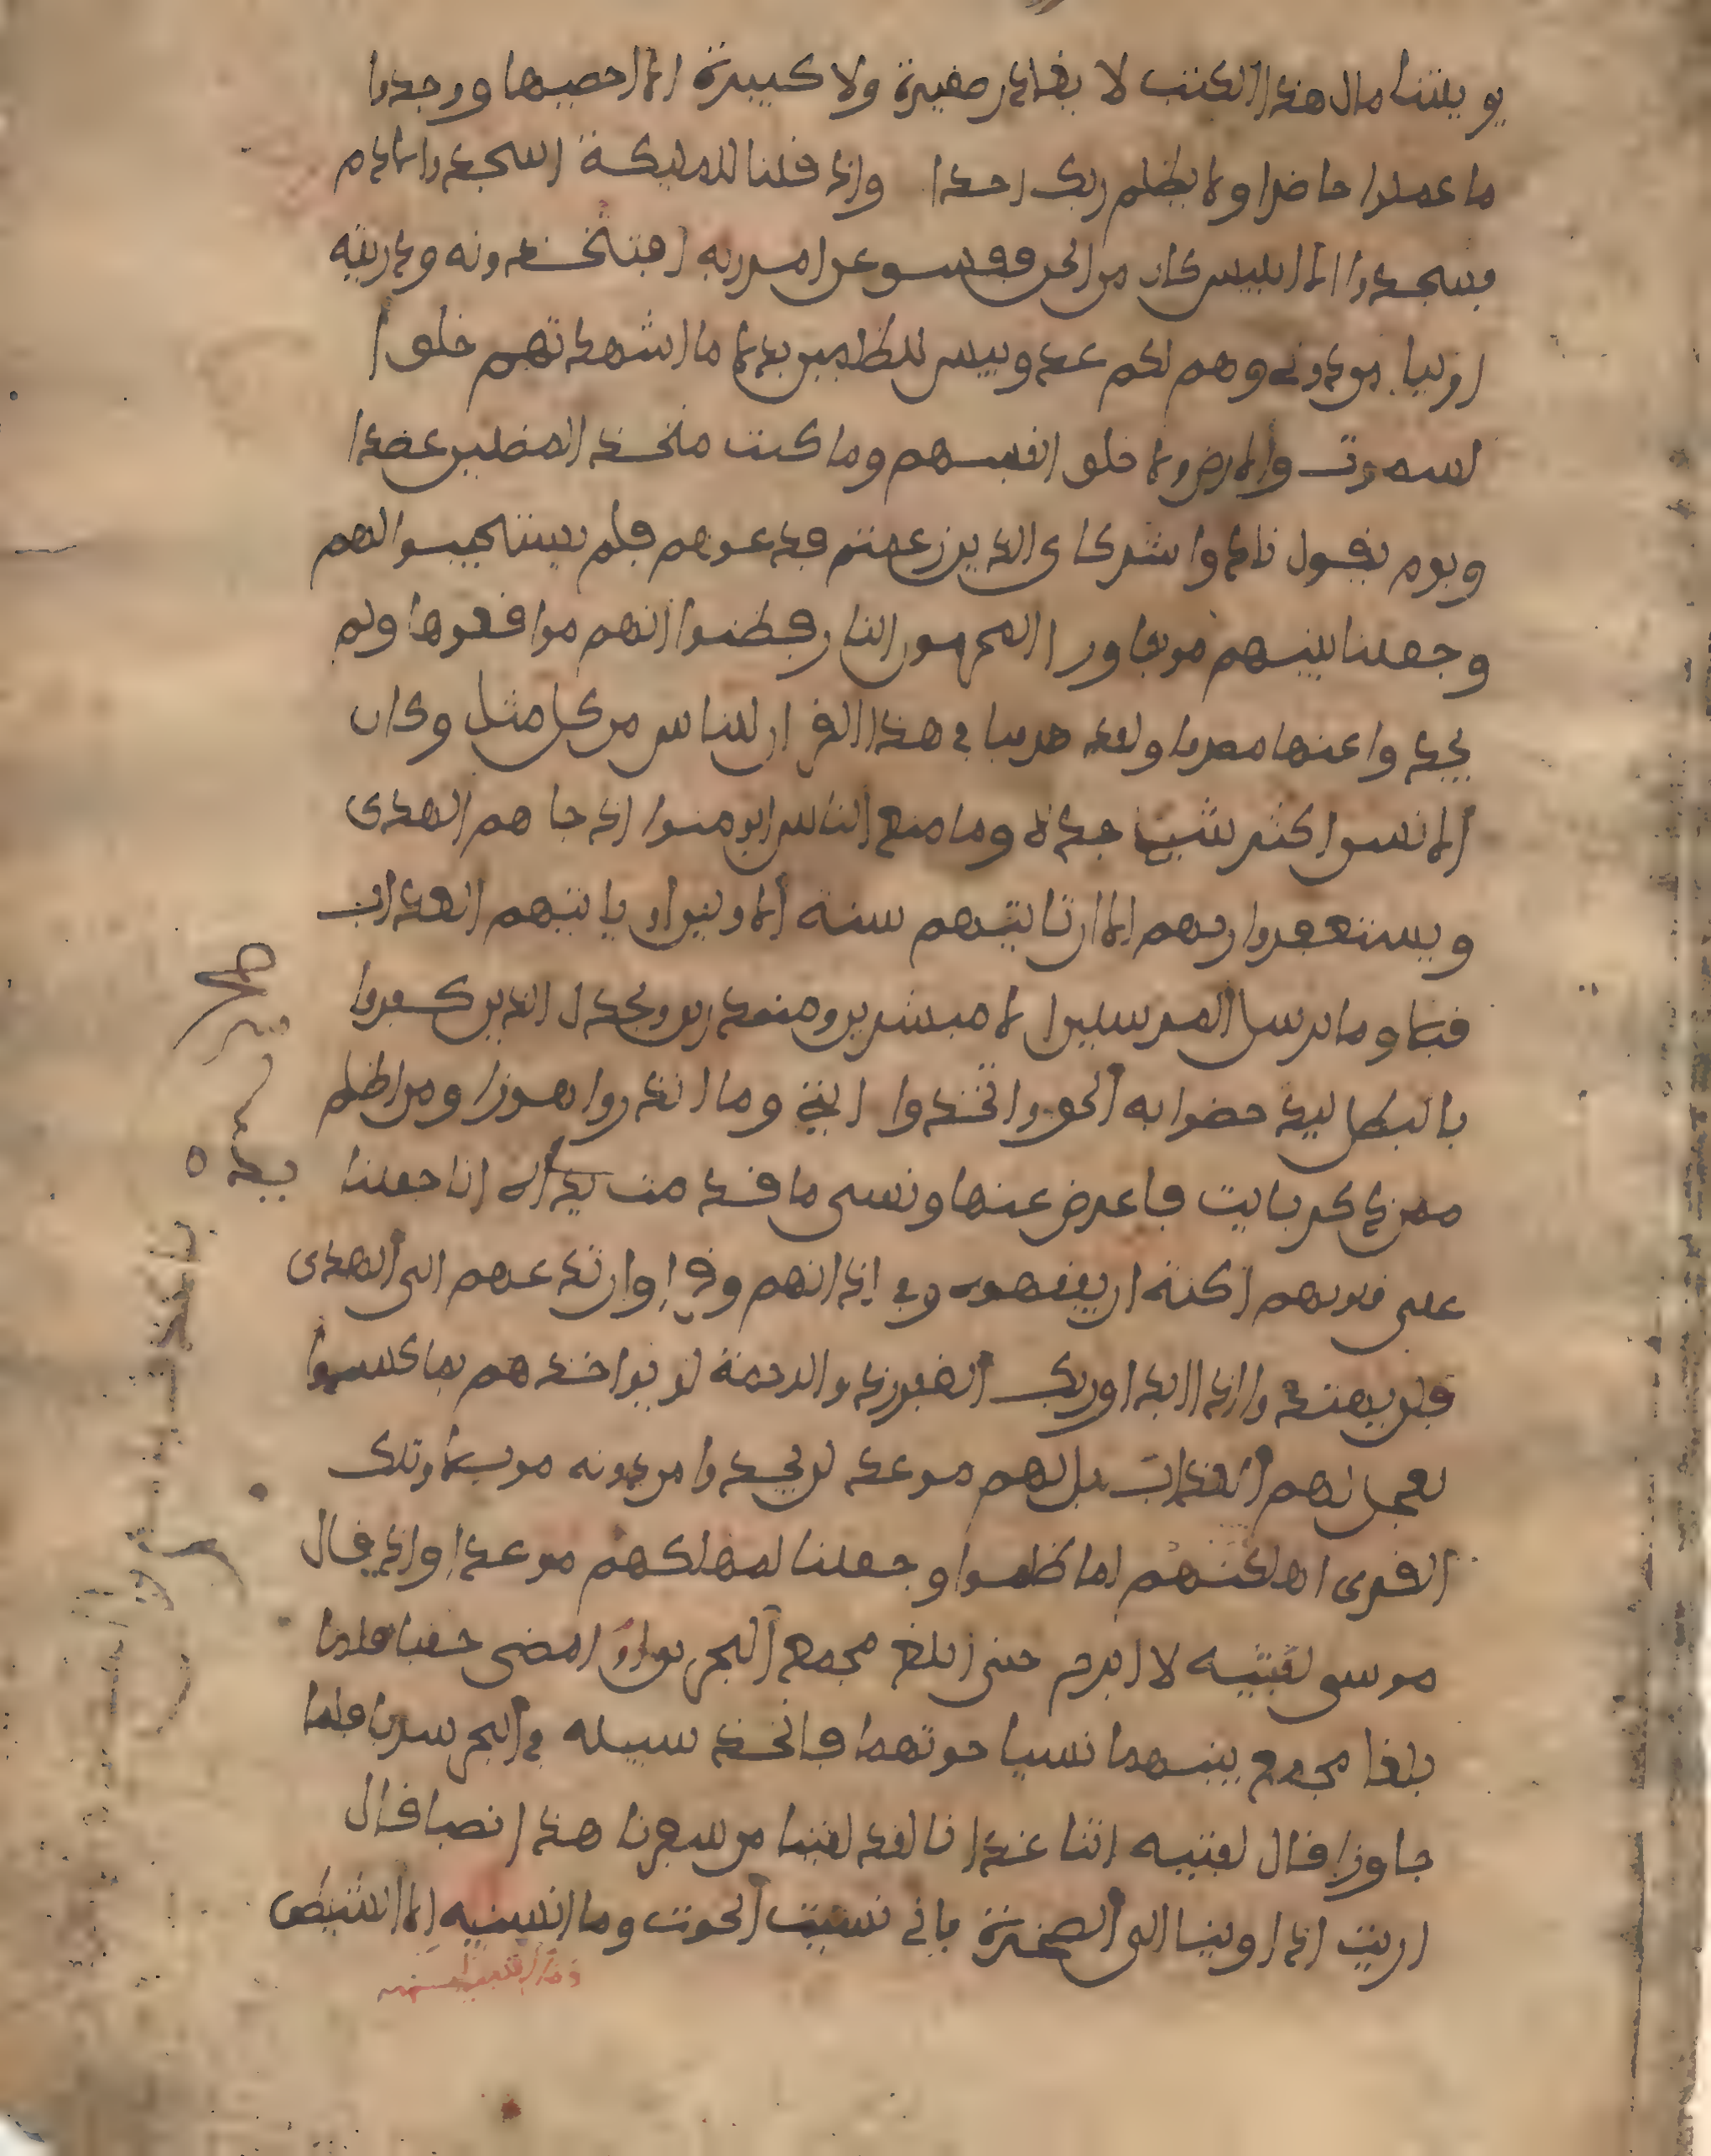 يويلتنا مال هذا الكتب لا يغادر صغيرة ولا كبيرة الا احصيها ووجدوا
ما عملوا حاضرا ولا يظلم ربك احدا واذ قلنا للمليكة اسجدوا لادم
فسجدوا الا ابليس كان من الجن ففسق عن امر ربه افتتخذونه وذريته
اوليا من دوني وهم لكم عدو بيس للظلمين بدلا ما اشهدتهم خلق ا
لسموت والارض ولا خلق انفسهم وما كنت متخذ المضلين عضدا
ويوم يقول نادوا شركاي الذين زعمتم فدعوهم فلم يستجيبوا لهم
وجعلنا بينهم موبقا ورا المجرمون النار فظنوا انهم مواقعوها ولم
يجدوا عنها مصرفا ولقد صرفنا في هذا القران للناس من كل مثل وكان
الانسن اكثر شيء جدلا وما منع الناس ان يومنوا اذ جاهم الهدى
ويستغفروا ربهم الا ان تاتيهم سنة الاولين او ياتيهم العذاب
قبلا وما نرسل المرسلين الا مبشرين ومنذرين ويجدل الذين كفروا
بالبطل ليدحضوا به الحق واتخذوا ايتي وما انذروا هزوا ومن اظلم
ممن ذكر بايت فاعرض عنها ونسى ما قدمت يداه انا جعلنا
على قلوبهم اكنة ان يفقهوه وفي اذانهم وقرا وان تدعهم الى الهدى
فلن يهتدوا اذا ابدا وربك الغفور ذو الرحمة لو يواخذهم بما كسبوا
لعجل لهم العذاب بل لهم موعد لن يجدوا من دونه مويلا وتلك
القرى اهلكنهم لما ظلموا وجعلنا لمهلكهم موعدا واذ قال
موسى لفتيه لا ابرح حتى ابلغ مجمع البحرين او امضى حقبا فلما
بلغا مجمع بينهما نسيا حوتهما فاتخذ سبيله في البحر سربا فلما
جاوزا قال لفتيه اتنا غدانا لقد لقينا من سفرنا هذا نصبا قال
اريت اذ اوينا الى الصخرة فاني نسيت الحوت وما انسنيه الا الشيطن